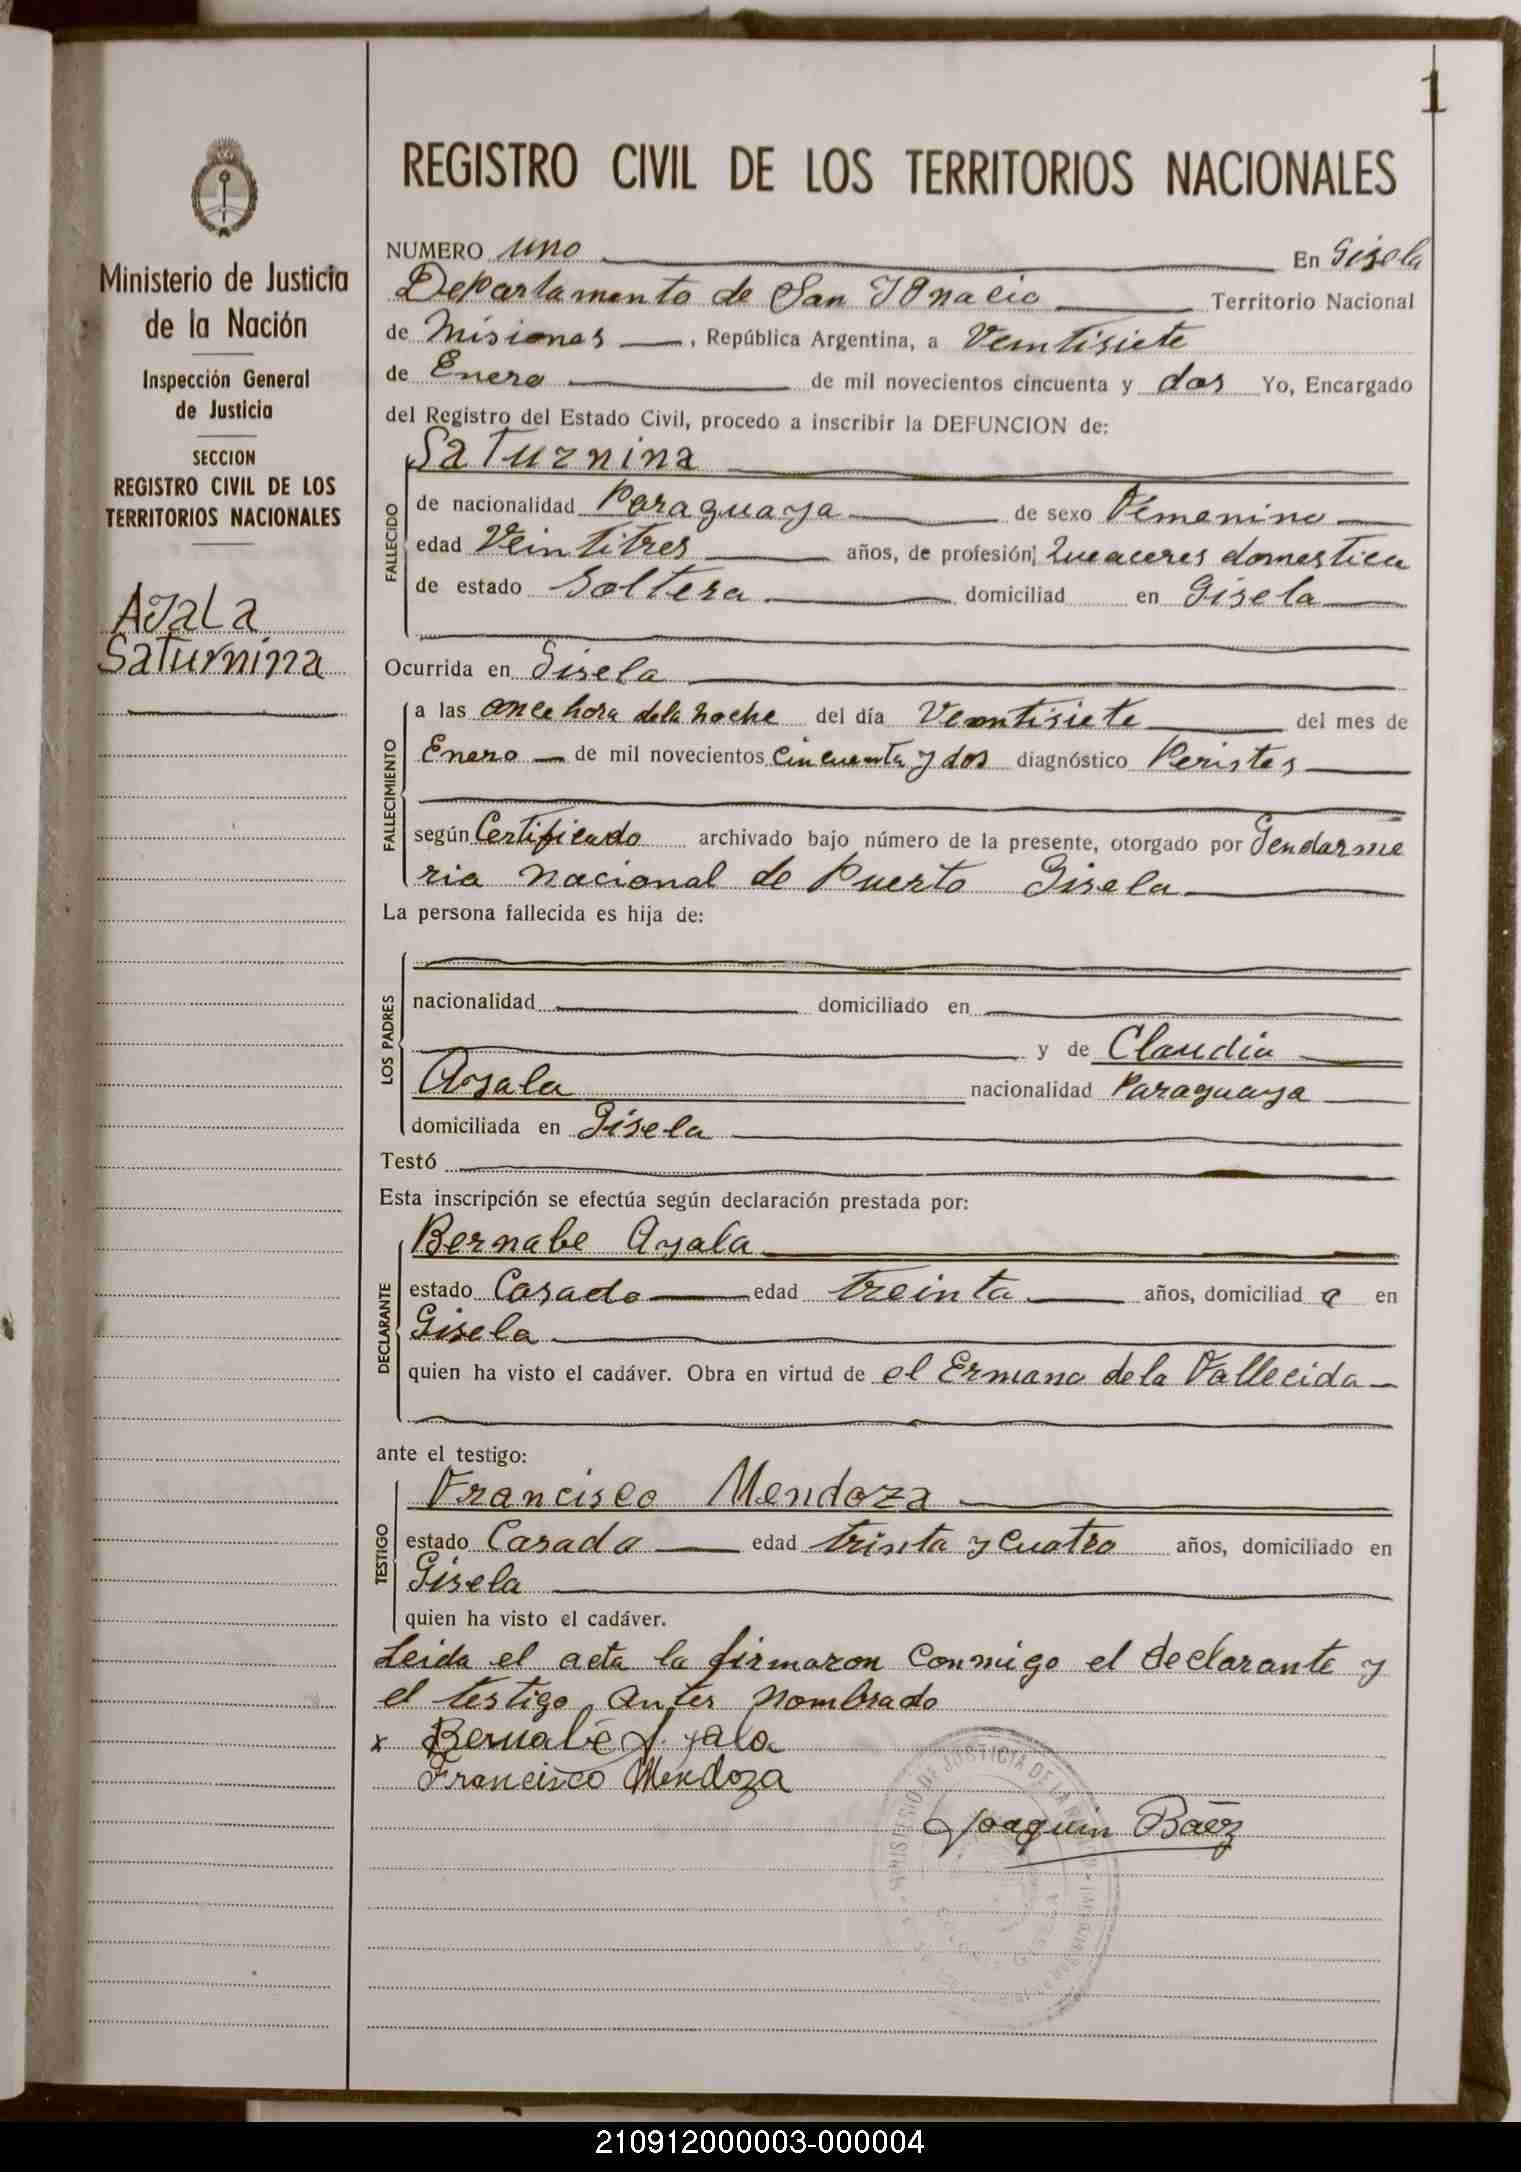 1
REGISTRO CIVIL DE LOS TERRITORIOS NACIONALES
Ministerio de Justicia
de la Nación
Inspección General
de Justicia
SECCION
REGISTRO CIVIL DE LOS
TERRITORIOS NACIONALES
Ayala
Saturnina
NUMERO uno En Gisela
Departamento de San Ignacio Territorio Nacional
de Misiones, República Argentina, a Veintisiete
de Enero de mil novecientos cincuenta y dos Yo, Encargado
del Registro del Estado Civil, procedo a inscribir la DEFUNCION de:
Saturnina
FALLECIDO
de nacionalidad Paraguaya de sexo Femenino
edad Veintitres años, de profesión Queaceres domestica
de estado Soltera domiciliad en Gisela
Ocurrida en Gisela
FALLECIMIENTO
a las once hora dela noche del día Veintisiete del mes de
Enero de mil novecientos cincuenta y dos diagnóstico
según Certificado archivado bajo número de la presente, otorgado por Gendarme
ria Nacional de Puerto Gisela
La persona fallecida es hija de:
LOS PADRES
nacionalidad domiciliado en
y de Claudia
Ayala nacionalidad Paraguaya
domiciliada en Gisela
Testó
Esta inscripción se efectúa según declaración prestada por:
DECLARANTE
Bernabe Ayala
estado Casado edad treinta años, domiciliad a en
Gisela
quien ha visto el cadáver. Obra en virtud de el Ermano dela Fallecida
ante el testigo:
TESTIGO
Francisco Mendoza
estado Casado edad trinta y cuatro años, domiciliado en
Gisela
quien ha visto el cadáver.
Leida el acta la firmaron conmigo el declarante y
el testigo antes nombrado
x Bernabé Ayala
Francisco Mendoza
Joaquin Baéz
MINISTERIO DE JUSTICIA DE LA NACION
GISELA
210912000003-000004